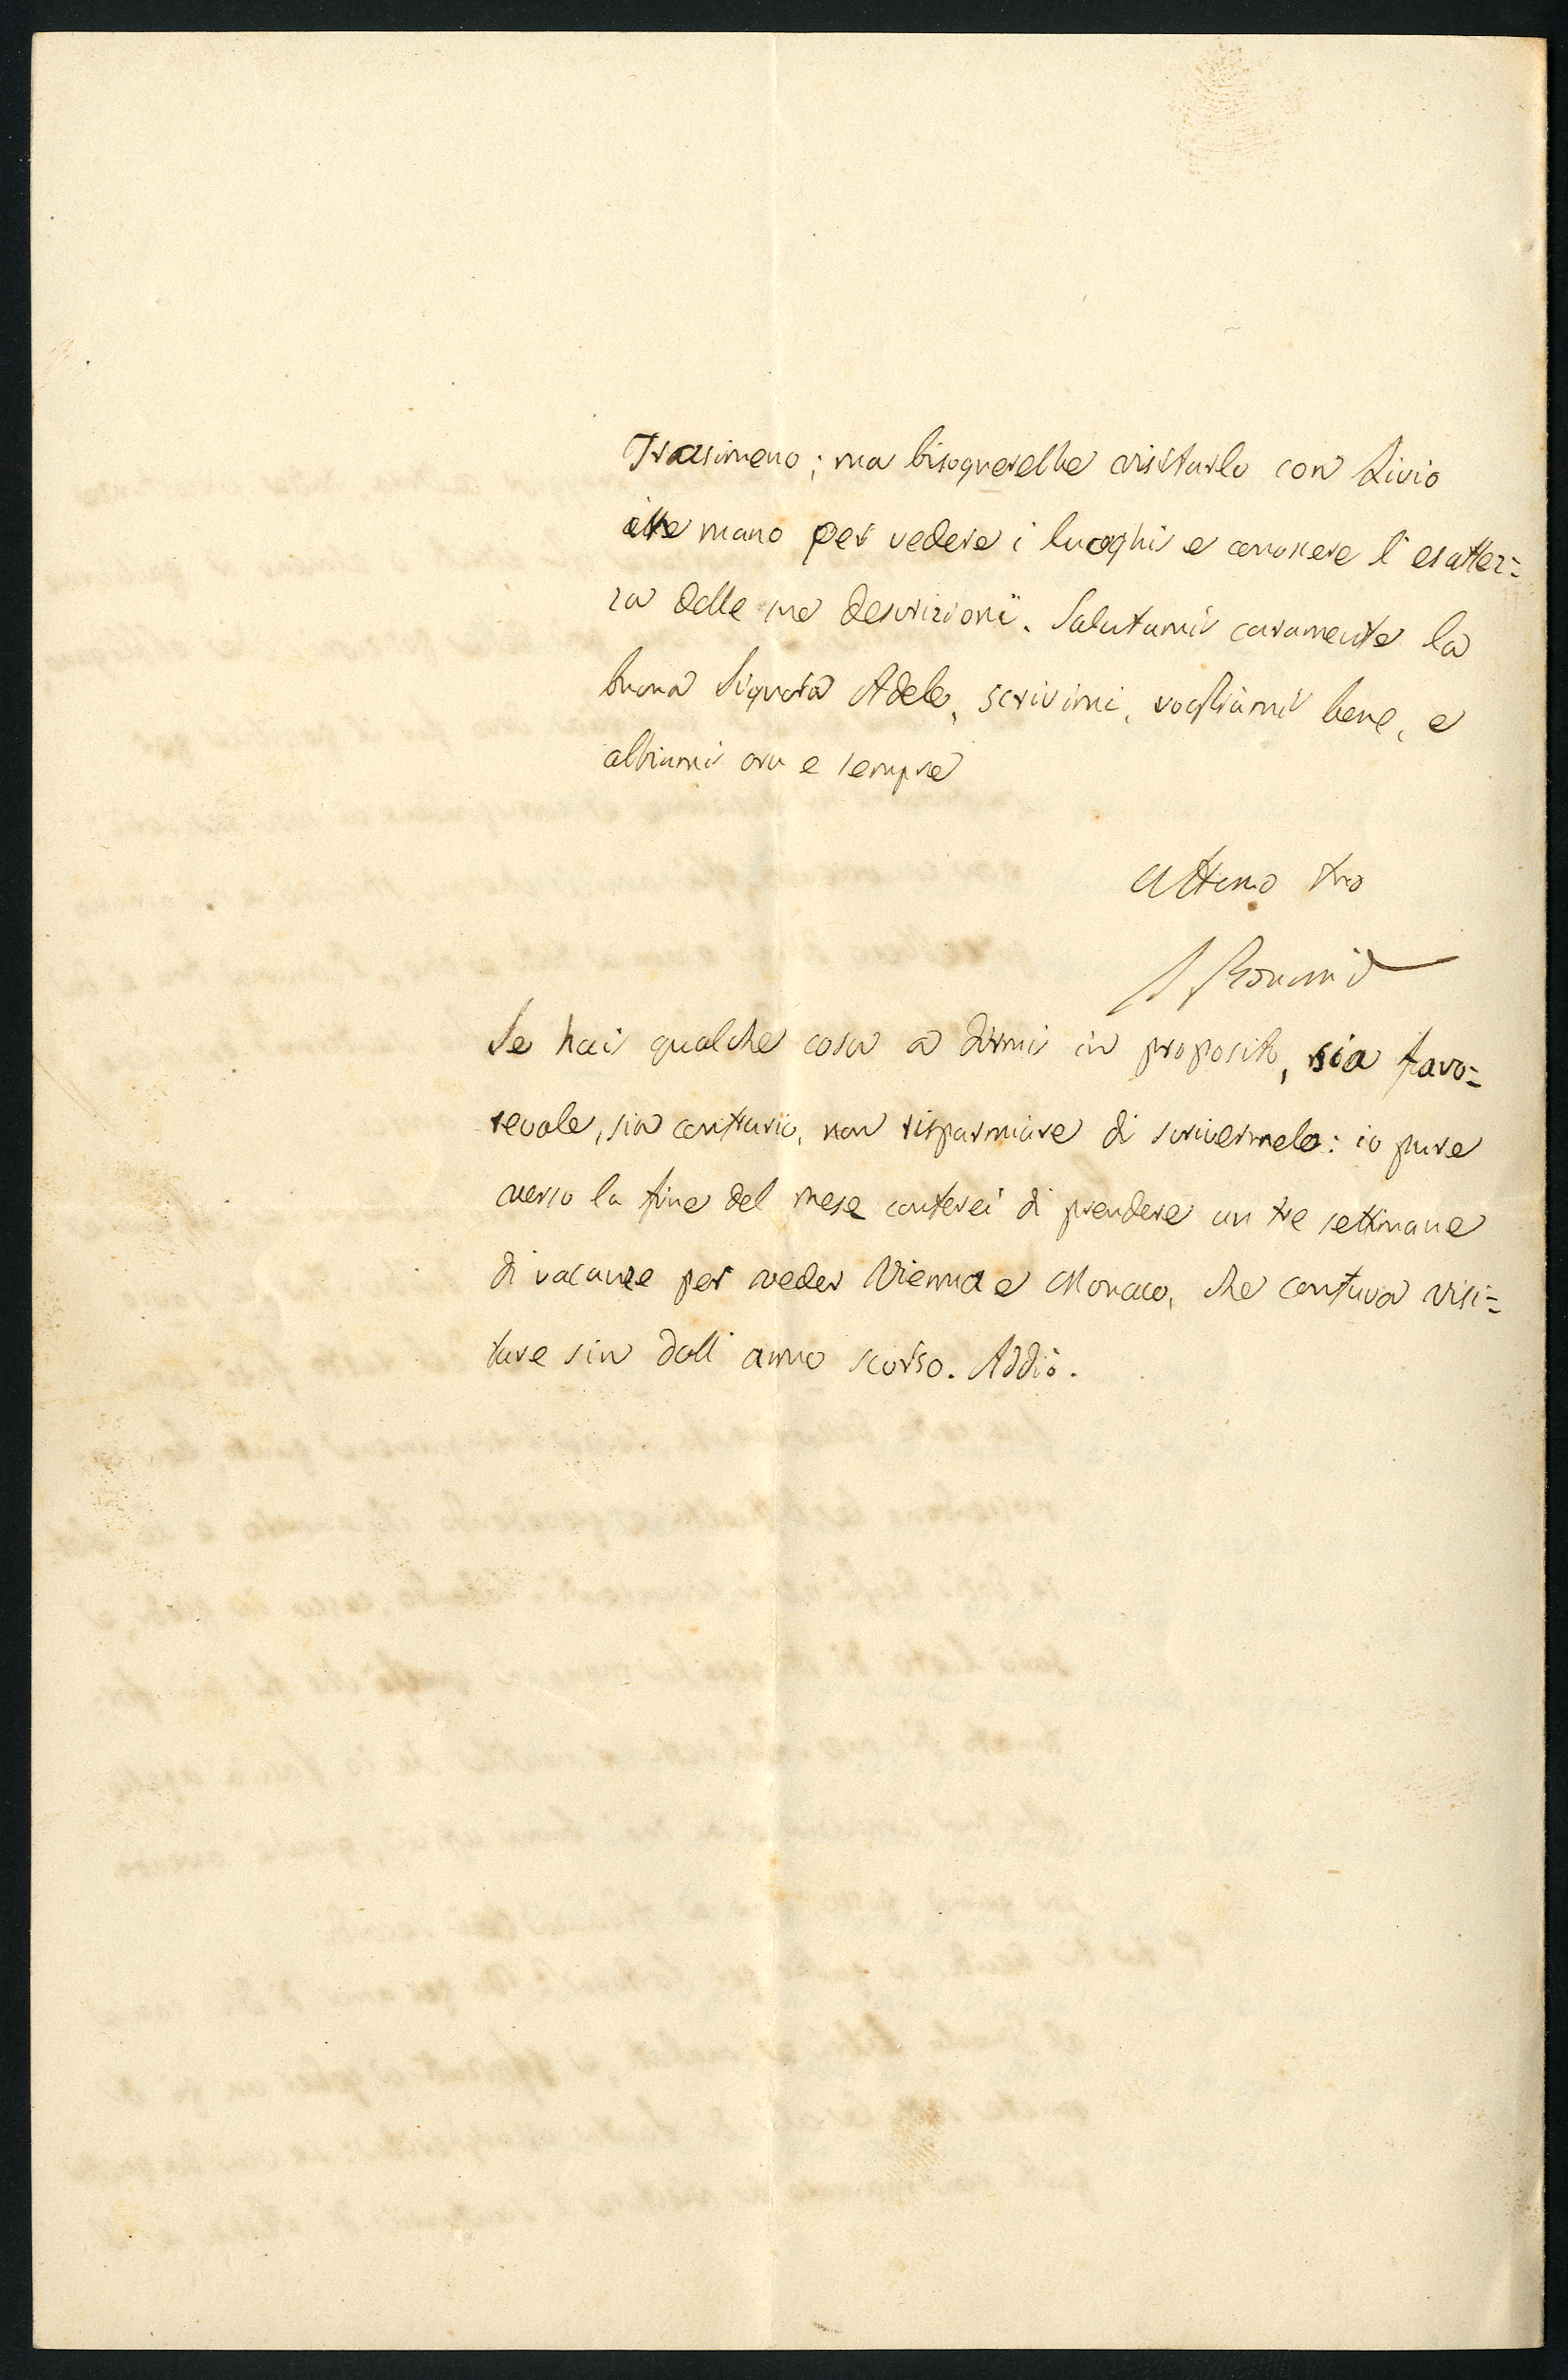 Trasimeno; ma bisognerebbe visitarlo con Livio
alle mano per vedere i luoghi e conoscere l'esattez=
za delle sue descrizioni. Salutami caramente la
buona Signora Adele, scrivimi, vogliami bene, e
abbiami ora e sempre
tuo
Se hai qualche cosa a dirmi in proposito, sia favo=
revole, sia contrario, non risparmiare di scrivermelo: io pure
verso la fine del mese conterei di prendere un tre settimane
di vacanze per veder Vienna e Monaco, che contava visi=
tare sin dall'anno scorso. Addio.